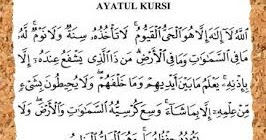 AYATUL KURSI
اَللّٰهُ لَآ اِلٰهَ اِلَّا هُوَ الْحَيُّ الْقَيُّوْمُ لَا تَأْخُذُهُ سِنَةٌ وَّلَا نَوْمٌ لَهُ
مَا فِي السَّمٰوٰتِ وَمَا فِي الْاَرْضِ مَنْ ذَا الَّذِيْ يَشْفَعُ عِنْدَهُ اِلَّا
بِاِذْنِهِ يَعْلَمُ مَا بَيْنَ اَيْدِيْهِمْ وَمَا خَلْفَهُمْ وَلَا يُحِيْطُوْنَ بِشَيْءٍ
مِّنْ عِلْمِهِ اِلَّا بِمَا شَآءَ وَسِعَ كُرْسِيُّهُ السَّمٰوٰتِ وَالْاَرْضَ وَلَا